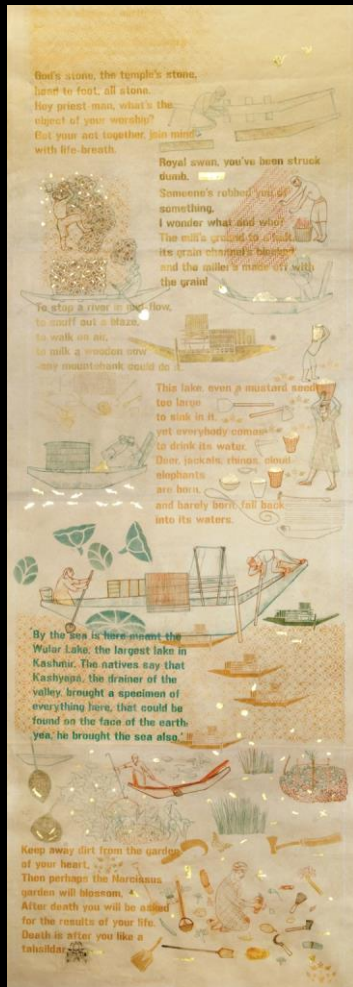 God's stone, the temple's stone,
head to foot, all stone.
Hey priest-man, what's the
object of your worship?
Get your act together, join mind
with life-breath.
Royal swan, you've been struck
dumb.
Someone's robbed you of
something.
I wonder what and who?
The mill's ground to a halt,
its grain channel's blocked
and the miller's made off with
the grain!
To stop a river in mid-flow,
to snuff out a blaze,
to walk on air,
to milk a wooden cow
-any mountebank could do it.
This lake, even a mustard seed's
too large
to sink in it,
yet everybody comes
to drink its water.
Deer, jackals, rhinos, cloud
elephants
are born,
and barely born, fall back
into its waters.
"By the sea is here meant the
Wular Lake, the largest lake in
Kashmir. The natives say that
Kashyapa, the drainer of the
valley, brought a specimen of
everything here, that could be
found on the face of the earth
yea, he brought the sea also."
Keep away dirt from the garden
of your heart,
Then perhaps the Narcissus
garden will blossom.
After death you will be asked
for the results of your life.
Death is after you like a
tahsildar.